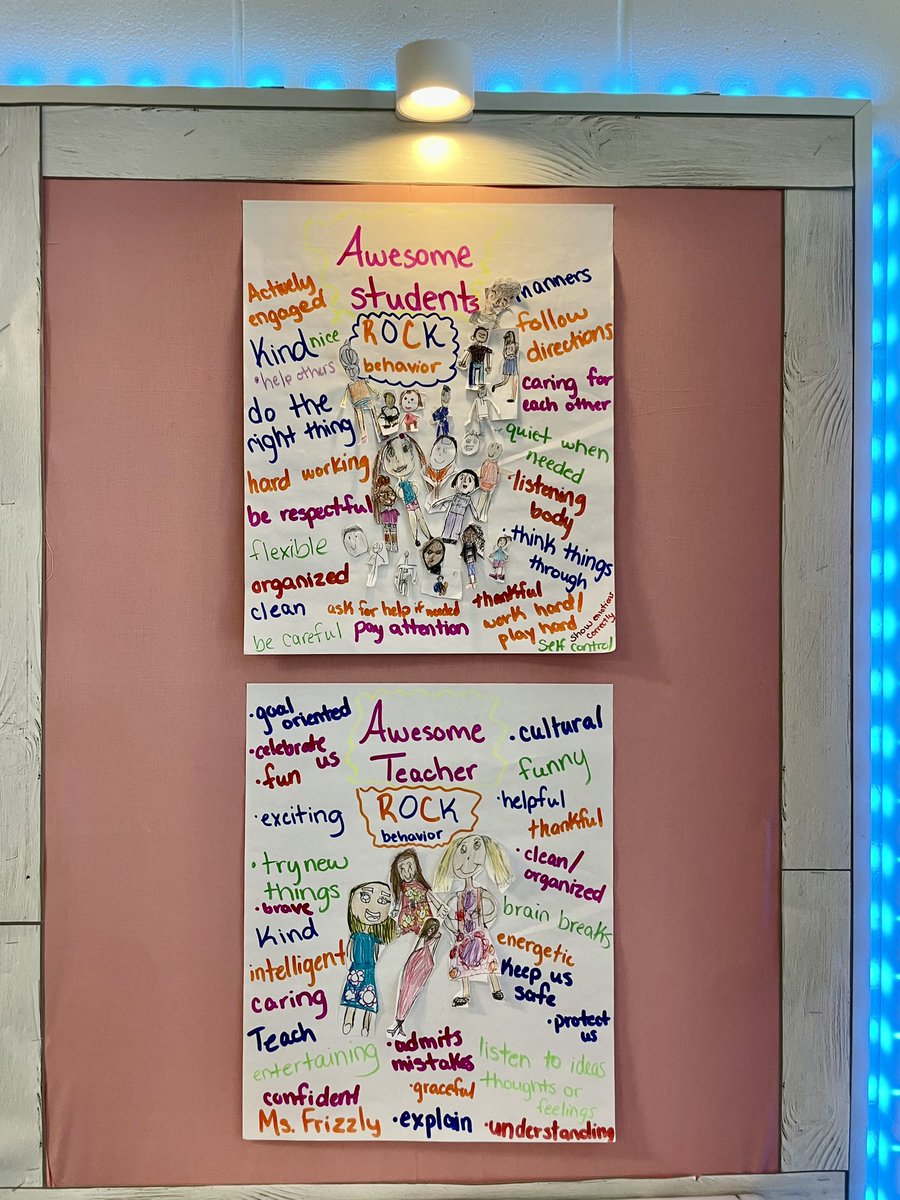 Awesome
students
ROCK
behavior
Actively
engaged
Kind nice
• help others
do the
right thing
hard working
be respectful
flexible
organized
clean
be careful
ask for help if needed
pay attention
manners
follow
directions
caring for
each other
• quiet when
needed
• listening
body
• think things
through
thankful
work hard/
play hard
show emotions
correctly
self control
Awesome
Teacher
ROCK
behavior
• goal
oriented
• celebrate
us
• fun
• exciting
• try new
things
• brave
Kind
intelligent
caring
Teach
entertaining
confident
Ms. Frizzly
• admits
mistakes
• graceful
• explain
• cultural
funny
• helpful
thankful
• clean/
organized
brain breaks
energetic
keep us
safe
• protect
us
listen to ideas
thoughts or
feelings
• understanding